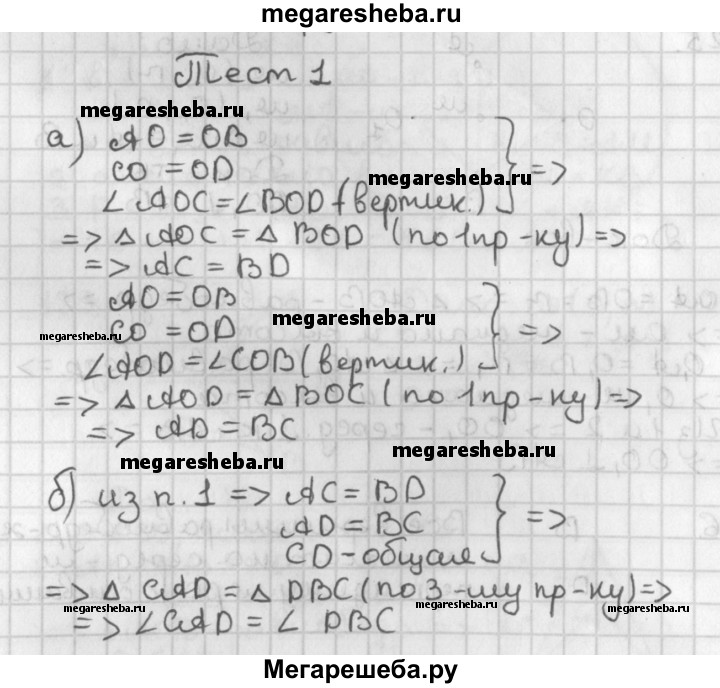 megaresheba.ru
Тест 1
megaresheba.ru
а) AO = OB
CO = OD
megaresheba.ru
} =>
∠AOC = ∠BOD (вертик.)
=> Δ AOC = Δ BOD (по 1 пр-ку) =>
=> AC = BD
AO = OB
megaresheba.ru
megaresheba.ru
CO = OD } =>
∠AOD = ∠COB (вертик.)
=> Δ AOD = Δ BOC (по 1 пр-ку) =>
=> AD = BC
megaresheba.ru
megaresheba.ru
б) из п. 1 => AC = BD
AD = BC } =>
CD - общая
=> Δ CAD = Δ DBC (по 3-му пр-ку) =>
megaresheba.ru
megaresheba.ru
megaresheba.ru
=> ∠CAD = ∠ DBC
Мегарешеба.ру